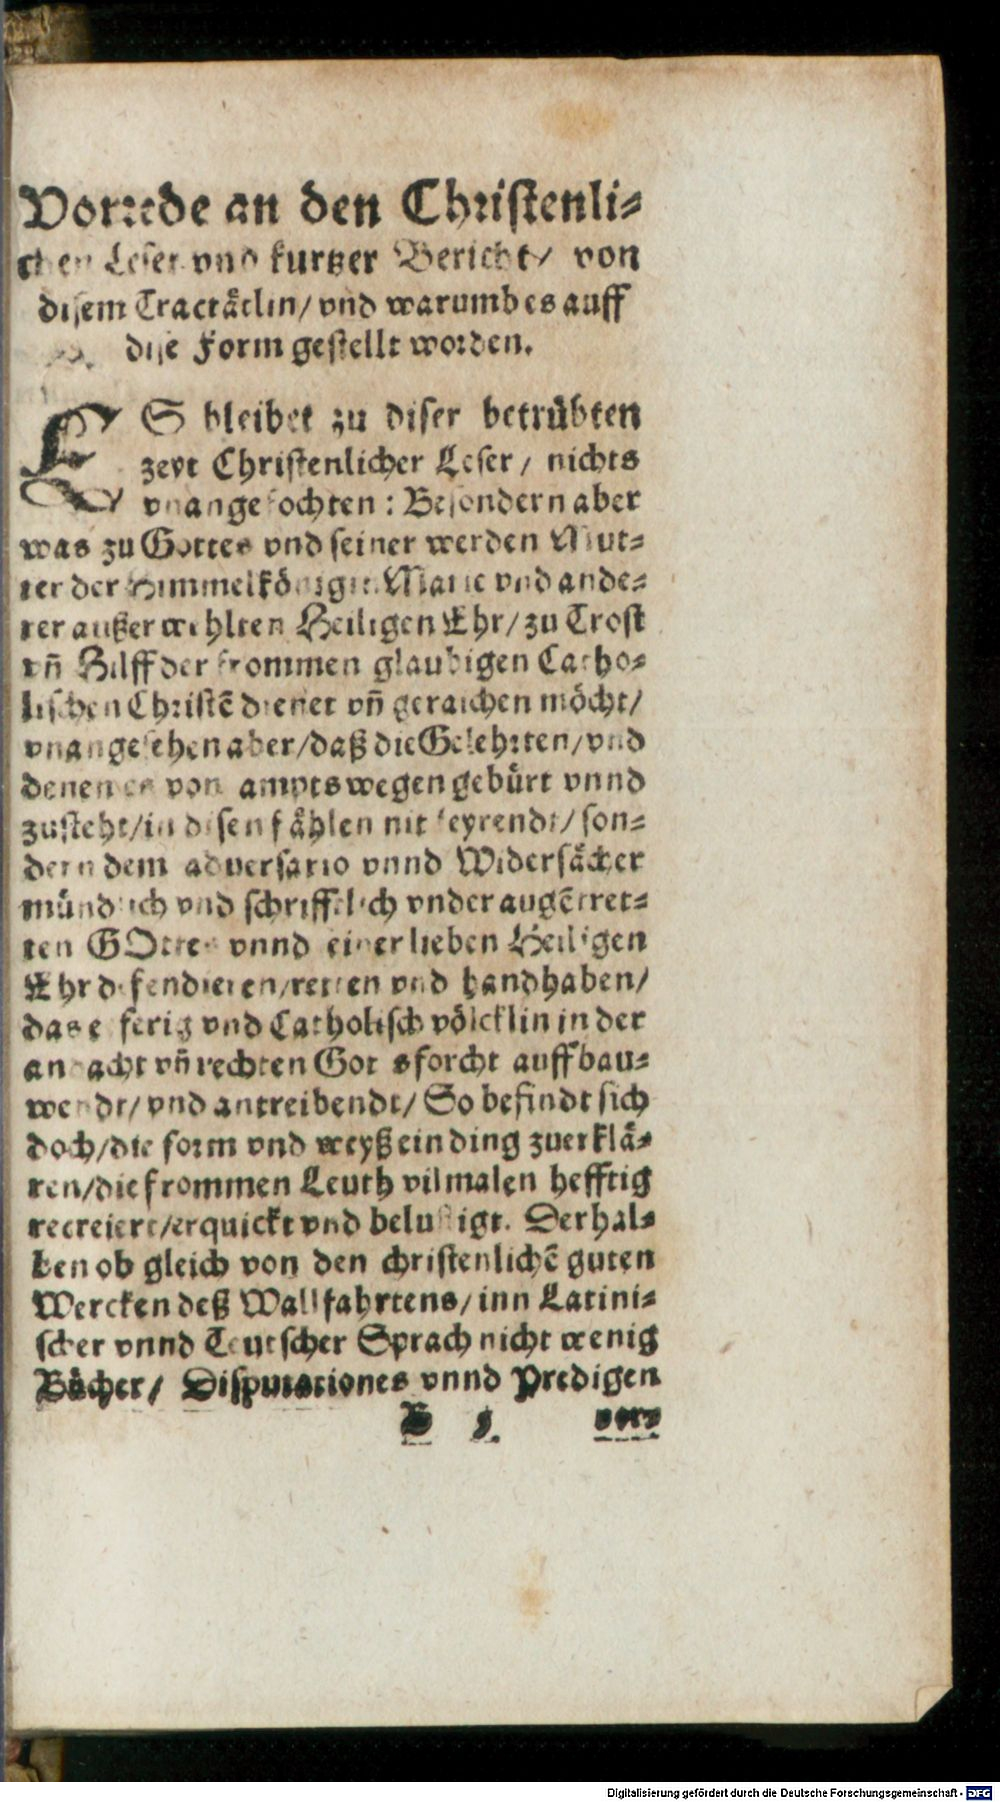 Vorrede an den Christenli⸗
chen Leser vnd kurtzer Bericht/ von
disem Tractätlin/ vnd warumb es auff
dise Form gestellt worden.
ES bleibet zu diser betrübten
zeyt Christenlicher Leser/ nichts
vnangefochten: Besondern aber
was zu Gottes vnd seiner werden Mut⸗
ter der Himmelkönigin Marie vnd ande⸗
rer außerwehlten Heiligen Ehr/ zu Trost
vñ Hilff der frommen glaubigen Catho⸗
lischen Christẽ dienet vñ geraichen möcht/
vnangesehen aber/ daß die Gelehrten/ vnd
denen es von ampts wegen gebürt vnnd
zusteht/ in disen fählen nit feyrendt/ son⸗
dern dem adversario vnnd Widersächer
mündlich vnd schrifftlich vnder augẽ tret⸗
ten GOttes vnnd seiner lieben Heiligen
Ehr defendieren/ retten vnd handhaben/
das eyferig vnd Catholisch völcklin in der
andacht vñ rechten Gottsforcht auffbau⸗
wendt/ vnd antreibendt/ So befindt sich
doch/ die form vnd weyß ein ding zuerklä⸗
ren/ die frommen Leuth vilmalen hefftig
recreiert/ erquickt vnd belustigt. Derhal⸗
ben ob gleich von den christenlichẽ guten
Wercken deß Wallfahrtens/ inn Latini⸗
scher vnnd Teutscher Sprach nicht wenig
Bücher/ Disputationes vnnd Predigen
B vor⸗
Digitalisierung gefördert durch die Deutsche Forschungsgemeinschaft - DFG